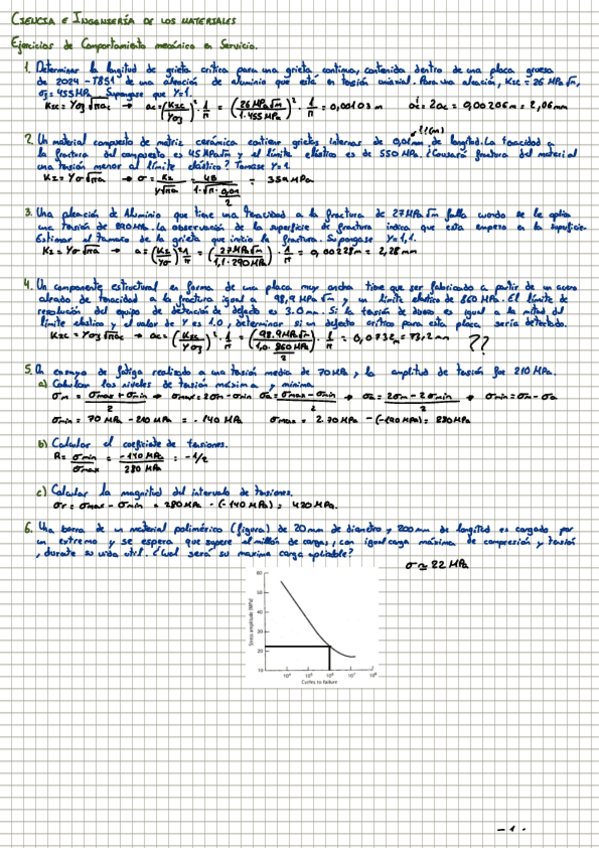 CIENCIA E INGENIERÍA DE LOS MATERIALES
Ejercicios de Comportamiento mecánico en Servicio.
1. Determinar la longitud de grieta crítica para una grieta continua, contenida dentro de una placa gruesa
de 2024-T851 de una aleación de aluminio que está en tensión uniaxial. Para una aleación, KIC = 26 MPa√m,
σy = 455 MPa. Supongase que Y=1.
KIC = Yσy√πac → ac = (KIC/Yσy)² · 1/π = (26 MPa√m / 1·455 MPa)² · 1/π = 0,00103 m   a'c = 2ac = 0,00206 m = 2,06 mm
2. Un material compuesto de matriz cerámica contiene grietas internas de 0,01 mm de longitud. La tenacidad a
la fractura del compuesto es 45 MPa√m y el límite elástico es de 550 MPa. ¿Causará fractura del material
una tensión menor al límite elástico? Tomase Y=1.
3. Una aleación de Aluminio que tiene una tenacidad a la fractura de 27 MPa√m falla cuando se le aplica
una tensión de MPa. La observación de la superficie de fractura indica que esta empezo en la superficie.
Estimar el tamaño de la grieta que inicio la fractura. Supongase Y=1,1.
K = Yσ√πa → a = (K/Yσ)² 1/π = (27 MPa√m / 1,1·290 MPa)² · 1/π = 0,00228 m = 2,28 mm
4. Un componente estructural en forma de una placa muy ancha tiene que ser fabricando a partir de un acero
aleado de tenacidad a la fractura igual a 98,9 MPa√m y un limite elastico de 860 MPa. El límite de
resolución del equipo de detección de defecto es 3.0 mm. Si la tensión de diseño es igual a la mitad del
límite elastico y el valor de Y es 1.0, determinar si un defecto crítico para esta placa sería detectado.
KIC = Yσy√πac → ac = (KIC/Yσy)² · 1/π = (98.9 MPa√m / 1,0 · 860 MPa/2)² · 1/π = m = mm ??
5. ensayo de fatiga realizado a una tensión media de 70 MPa y la amplitud de tensión fue 210 MPa.
a) Calcular los niveles de tasión máxima y mínima
σm = (σmax + σmin)/2 → σmax = 2σm - σmin   σa = (σmax - σmin)/2 → σa = (2σm - 2σmin)/2 → σmin = σm - σa
σmin = 70 MPa - 210 MPa = -140 MPa   σmax = 2·70 MPa - (-140 MPa) = 280 MPa
b) Calcular el coeficiente de tensiones.
R = σmin/σmax = -140 MPa/280 MPa = -1/2
c) Calcular la magnitud del intervalo de tensiones.
σr = σmax - σmin = 280 MPa - (-140 MPa) = 420 MPa.
6. Una barra de un material polimérico (figura) de 20 mm de diametro y 200 mm de longitud es cargado por
un extremo y se espera que supere el millón de cargas, con igual carga máxima de compresión y tensión
, durante su vida util. ¿Cual será su maxima carga aplicable?
σ ≈ 22 MPa
Stress amplitude (MPa)
60
50
40
30
20
10
10⁴ 10⁵ 10⁶ 10⁷ 10⁸
Cycles to failure
- 1 -